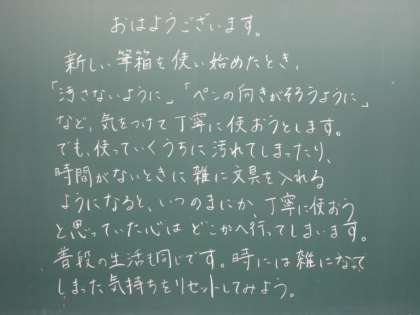 おはようございます。
新しい筆箱を使い始めたとき、
「汚さないように」「ペンの向きがそろうように」
など、気をつけて丁寧に使おうとします。
でも、使っていくうちに汚れてしまったり、
時間がないときに雑に文具を入れる
ようになると、いつのまにか、丁寧に使おう
と思っていた心はどこかへ行ってしまいます。
普段の生活も同じです。時には雑になって
しまった気持ちをリセットしてみよう。